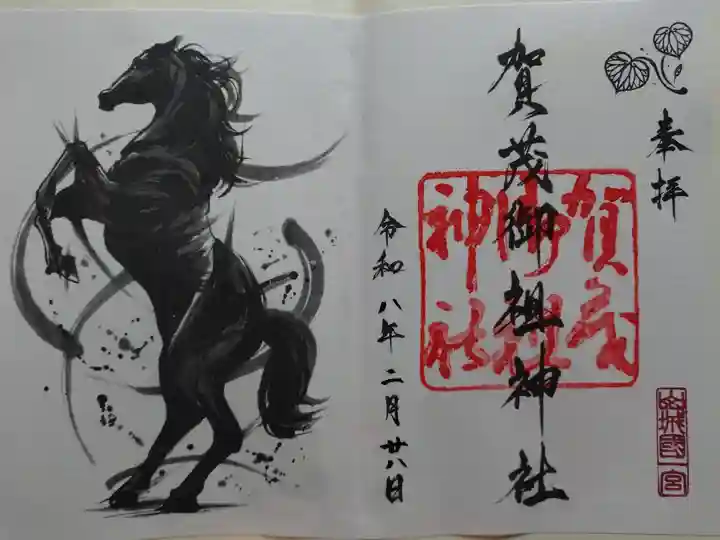 奉拝
山城國一宮
賀茂御祖神社
賀茂御祖神社
令和八年二月廿八日